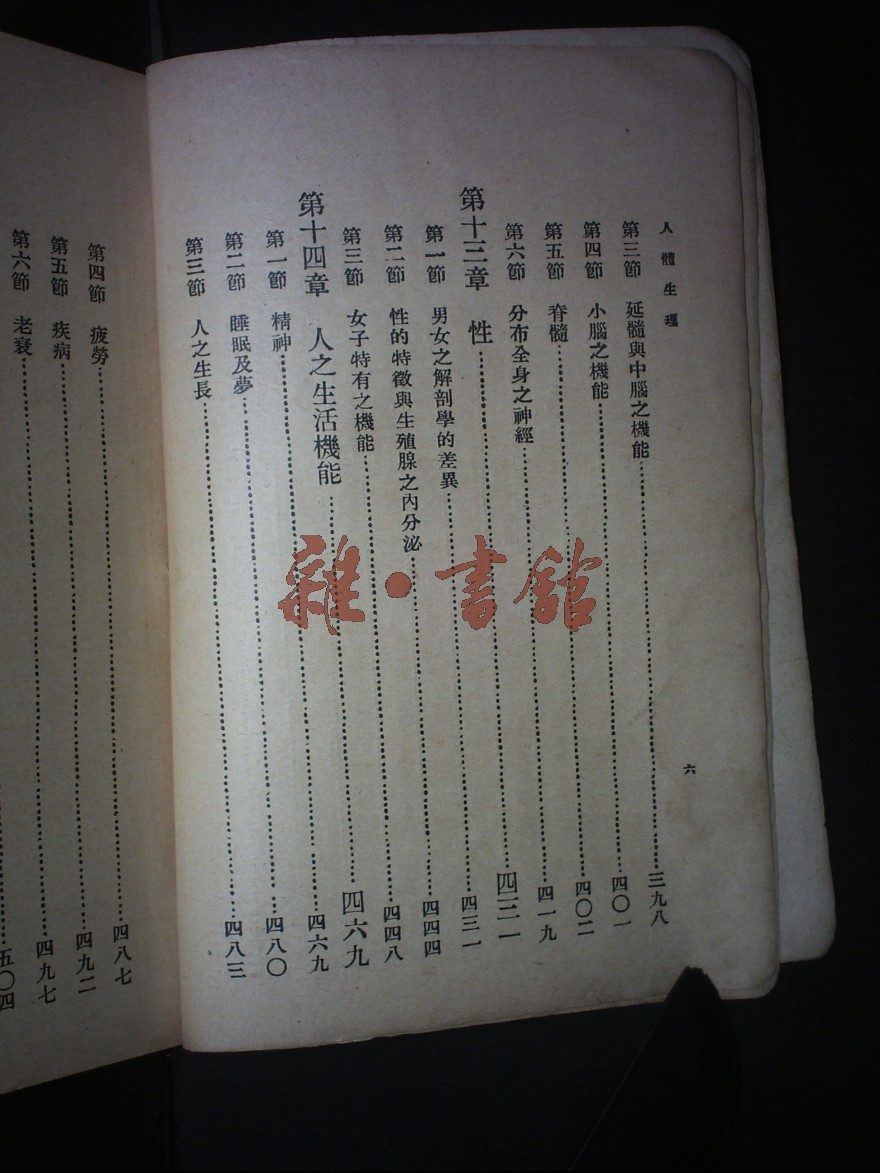 人體生理
六
第三節 延髓與中腦之機能……三九八
第四節 小腦之機能……四〇一
第五節 脊髓……四〇二
第六節 分布全身之神經……四一九
第十三章 性……四三一
第一節 男女之解剖學的差異……四三一
第二節 性的特徵與生殖腺之內分泌……四四四
第三節 女子特有之機能……四四八
第十四章 人之生活機能……四六九
第一節 精神……四六九
第二節 睡眠及夢……四八〇
第三節 人之生長……四八三
第四節 疲勞……四八七
第五節 疾病……四九二
第六節 老衰……四九七
五〇四
雜·書館